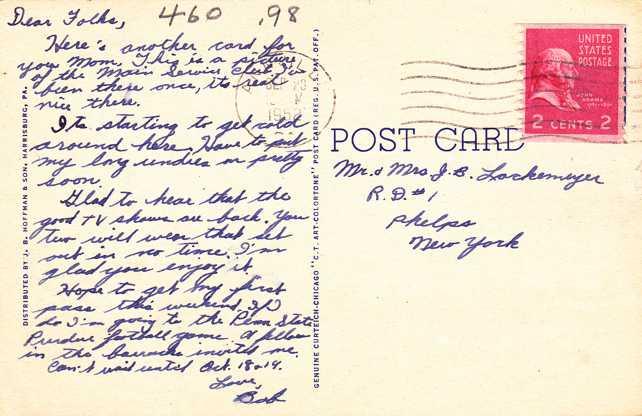 Dear Folks,
460 .98
Here's another card for
you Mom. This is a picture
of the Main Service Club. I've
been there once, its real
nice there.
Its starting to get cold
around here. Have to put
my long undies on pretty
soon.
Glad to hear that the
good TV shows are back. You
two will wear that set
out in no time. I'm
glad you enjoy it.
Hope to get my first
pass this weekend. If I
do I'm going to the Penn State
Purdue football game. A fellow
in the barracks invited me.
Can't wait until Oct. 18 or 19.
Love,
Bob
DISTRIBUTED BY J. B. HOFFMAN & SON, HARRISBURG, PA.
GENUINE CURTEICH-CHICAGO "C.T. ART-COLORTONE" POST CARD (REG. U. S. PAT. OFF.)
SEP
UNITED
STATES
POSTAGE
JOHN
ADAMS
2 CENTS 2
POST CARD
Mr. & Mrs J. B. Lockemeyer
R.D. #1
Phelps
New York